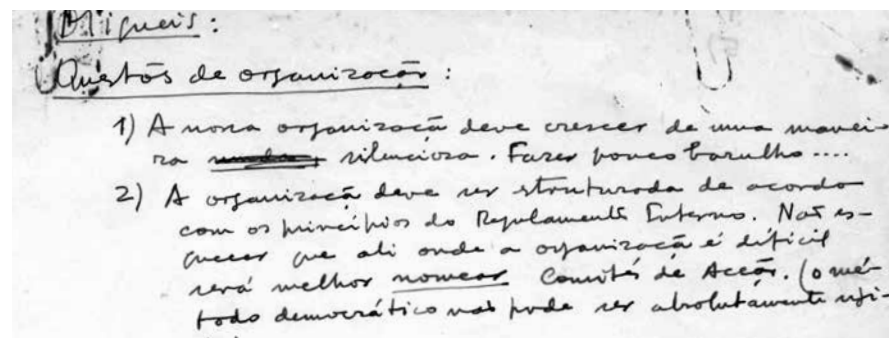 Migueis:
Questões de organização:
1) A nossa organização deve crescer de uma manei-
ra silenciosa. Fazer pouco barulho....
2) A organização deve ser struturada de acordo
com os princípios do Regulamento Interno. Não es-
quecer que ali onde a organização é difícil
será melhor nomear Comités de Acção. (o mé-
todo democrático não pode ser absolutamente